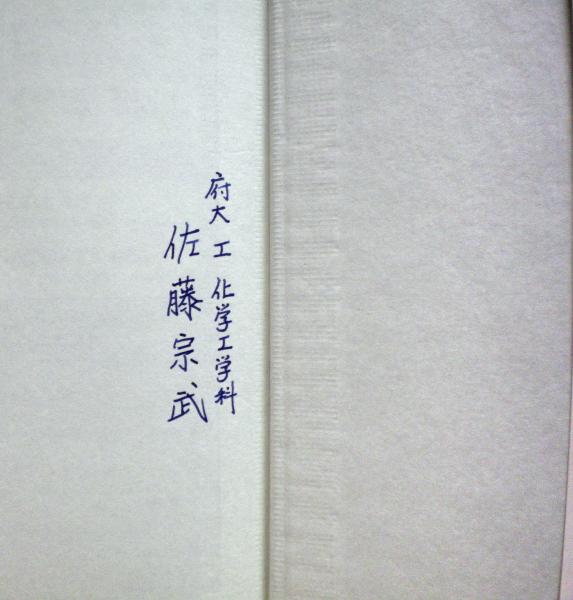 府大 工 化学工学科
佐藤宗武